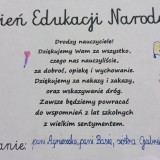 zień Edukacji Narodo
Drodzy nauczyciele!
Dziękujemy Wam za wszystko,
czego nas nauczyliście,
za dobroć, opiekę i wychowanie.
Dziękujemy za nakazy i zakazy,
oraz wskazywanie dróg.
Zawsze będziemy powracać
do wspomnień z lat szkolnych
z wielkim sentymentem.
anie: pani Agnieszka, pani Basia, siostra